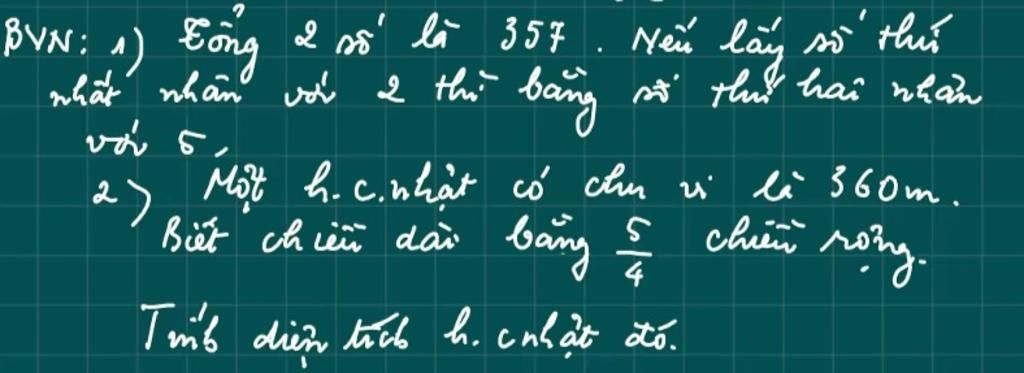 BVN: 1) Tổng 2 số là 357. Nếu lấy số thứ
nhất nhân với 2 thì bằng số thứ hai nhân
với 5.
2) Một h.c.nhật có chu vi là 360m.
Biết chiều dài bằng 5/4 chiều rộng.
Tính diện tích h.c nhật đó.